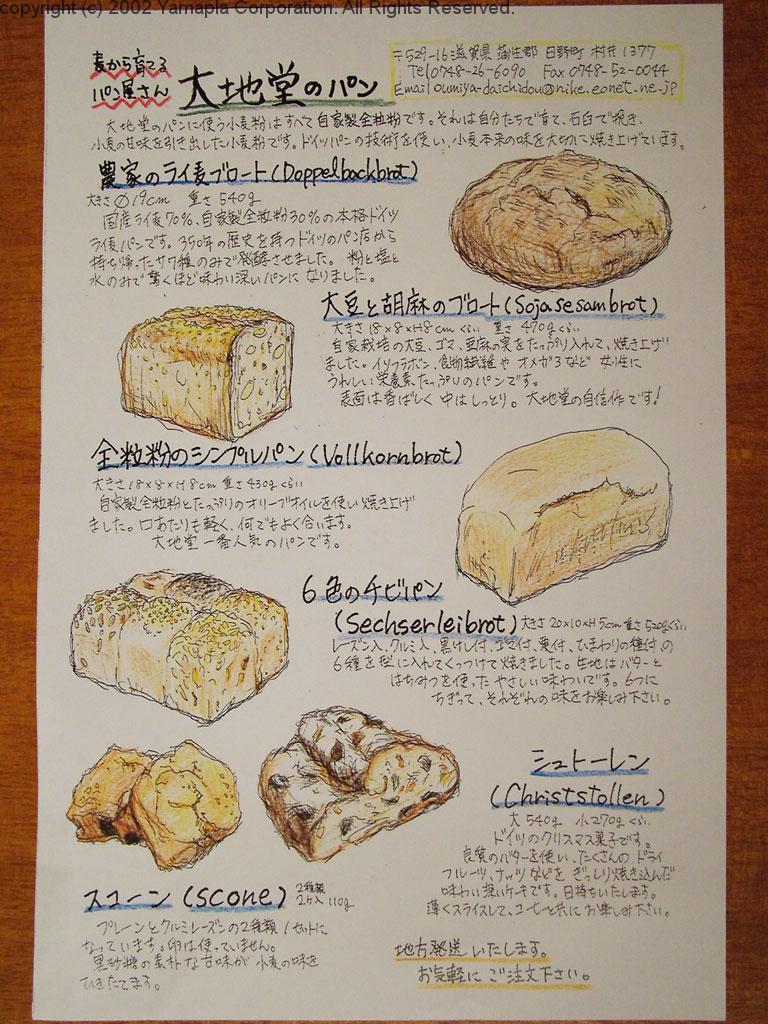 copyright (c) 2002 Yamapla Corporation. All Rights Reserved.
麦から育てる
パン屋さん
大地堂のパン
〒529-16 滋賀県 蒲生郡 日野町 村井 1377
Tel 0748-26-6090 Fax 0748-52-0044
Email oumiya-daichidou@nike.eonet.ne.jp
大地堂のパンに使う小麦粉はすべて自家製全粒粉です。それは自分たちで育て、石臼で挽き、
小麦の甘味を引き出した小麦粉です。ドイツパンの技術を使い、小麦本来の味を大切に焼き上げています。
農家のライ麦ブロート(Doppelbackbrot)
大きさ∅19cm 重さ 540g
国産ライ麦70%、自家製全粒粉30%の本格ドイツ
ライ麦パンです。350年の歴史を持つドイツのパン店から
持ち帰ったサワ種のみで発酵させました。粉と塩と
水のみで驚くほど味わい深いパンになりました。
大豆と胡麻のブロート(Sojasesambrot)
大きさ 18×8×H8cmくらい 重さ 470gくらい
自家栽培の大豆、ゴマ、亜麻の実をたっぷり入れて、焼き上げ
ました。イソフラボン、食物繊維やオメガ3など 女性に
うれしい栄養素たっぷりのパンです。
表面は香ばしく 中はしっとり。大地堂の自信作です!
全粒粉のシンプルパン(Vollkornbrot)
大きさ 18×8×H8cm 重さ 430gくらい
自家製全粒粉とたっぷりのオリーブオイルを使い焼き上げ
ました。口あたりも軽く、何でもよく合います。
大地堂一番人気のパンです。
6色のチビパン
(Sechserleibrot) 大きさ 20×10×H5cm 重さ 520gくらい
レーズン入、クルミ入、黒けし付、ゴマ付、粟付、ひまわりの種付、の
6種を型に入れてくっつけて焼きました。生地はバターと
はちみつを使った やさしい味わいです。6つに
ちぎって、それぞれの味をお楽しみ下さい。
シュトーレン
(Christstollen)
大 540g 小 270gくらい
ドイツのクリスマス菓子です。
良質のバターを使い、たくさんの ドライ
フルーツ、ナッツなどを ぎっしり焼き込んだ
味わい深いケーキです。日持ちいたします。
薄くスライスして、コーヒーと共に お楽しみ下さい。
スコーン (scone) 2種類
2ケ入 110g
プレーンとクルミレーズンの2種類 1セットに
なっています。卵は使っていません。
黒砂糖の素朴な甘味が 小麦の味を
ひきたてます。
地方発送 いたします。
お気軽に ご注文下さい。